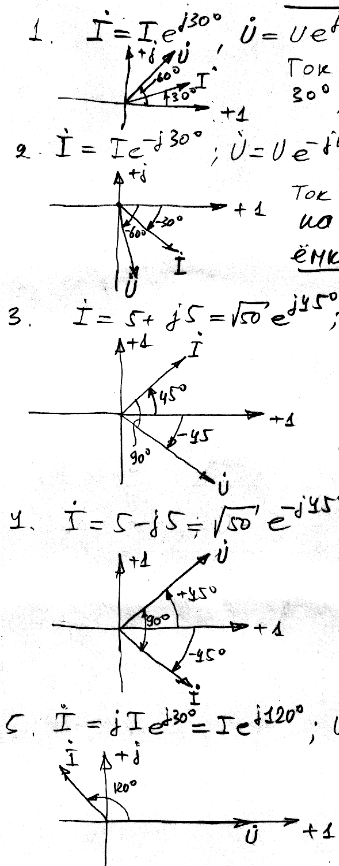 1. İ = I e^{j30°}, U̇ = U e^{j
+j
U̇
60°
İ
+30°
+1
Ток
30°
2. İ = I e^{-j30°}; U̇ = U e^{-j
+j
+1
-60°
-30°
İ
U̇
Ток
на
ёмк
3. İ = 5 + j5 = √50 e^{j45°};
+1
İ
45°
+1
90°
-45
U̇
4. İ = 5 - j5 = √50 e^{-j45°
+1
U̇
+45°
90°
+1
-45°
İ
5. İ = jI e^{j30°} = I e^{j120°};
İ
+j
120°
U̇
+1